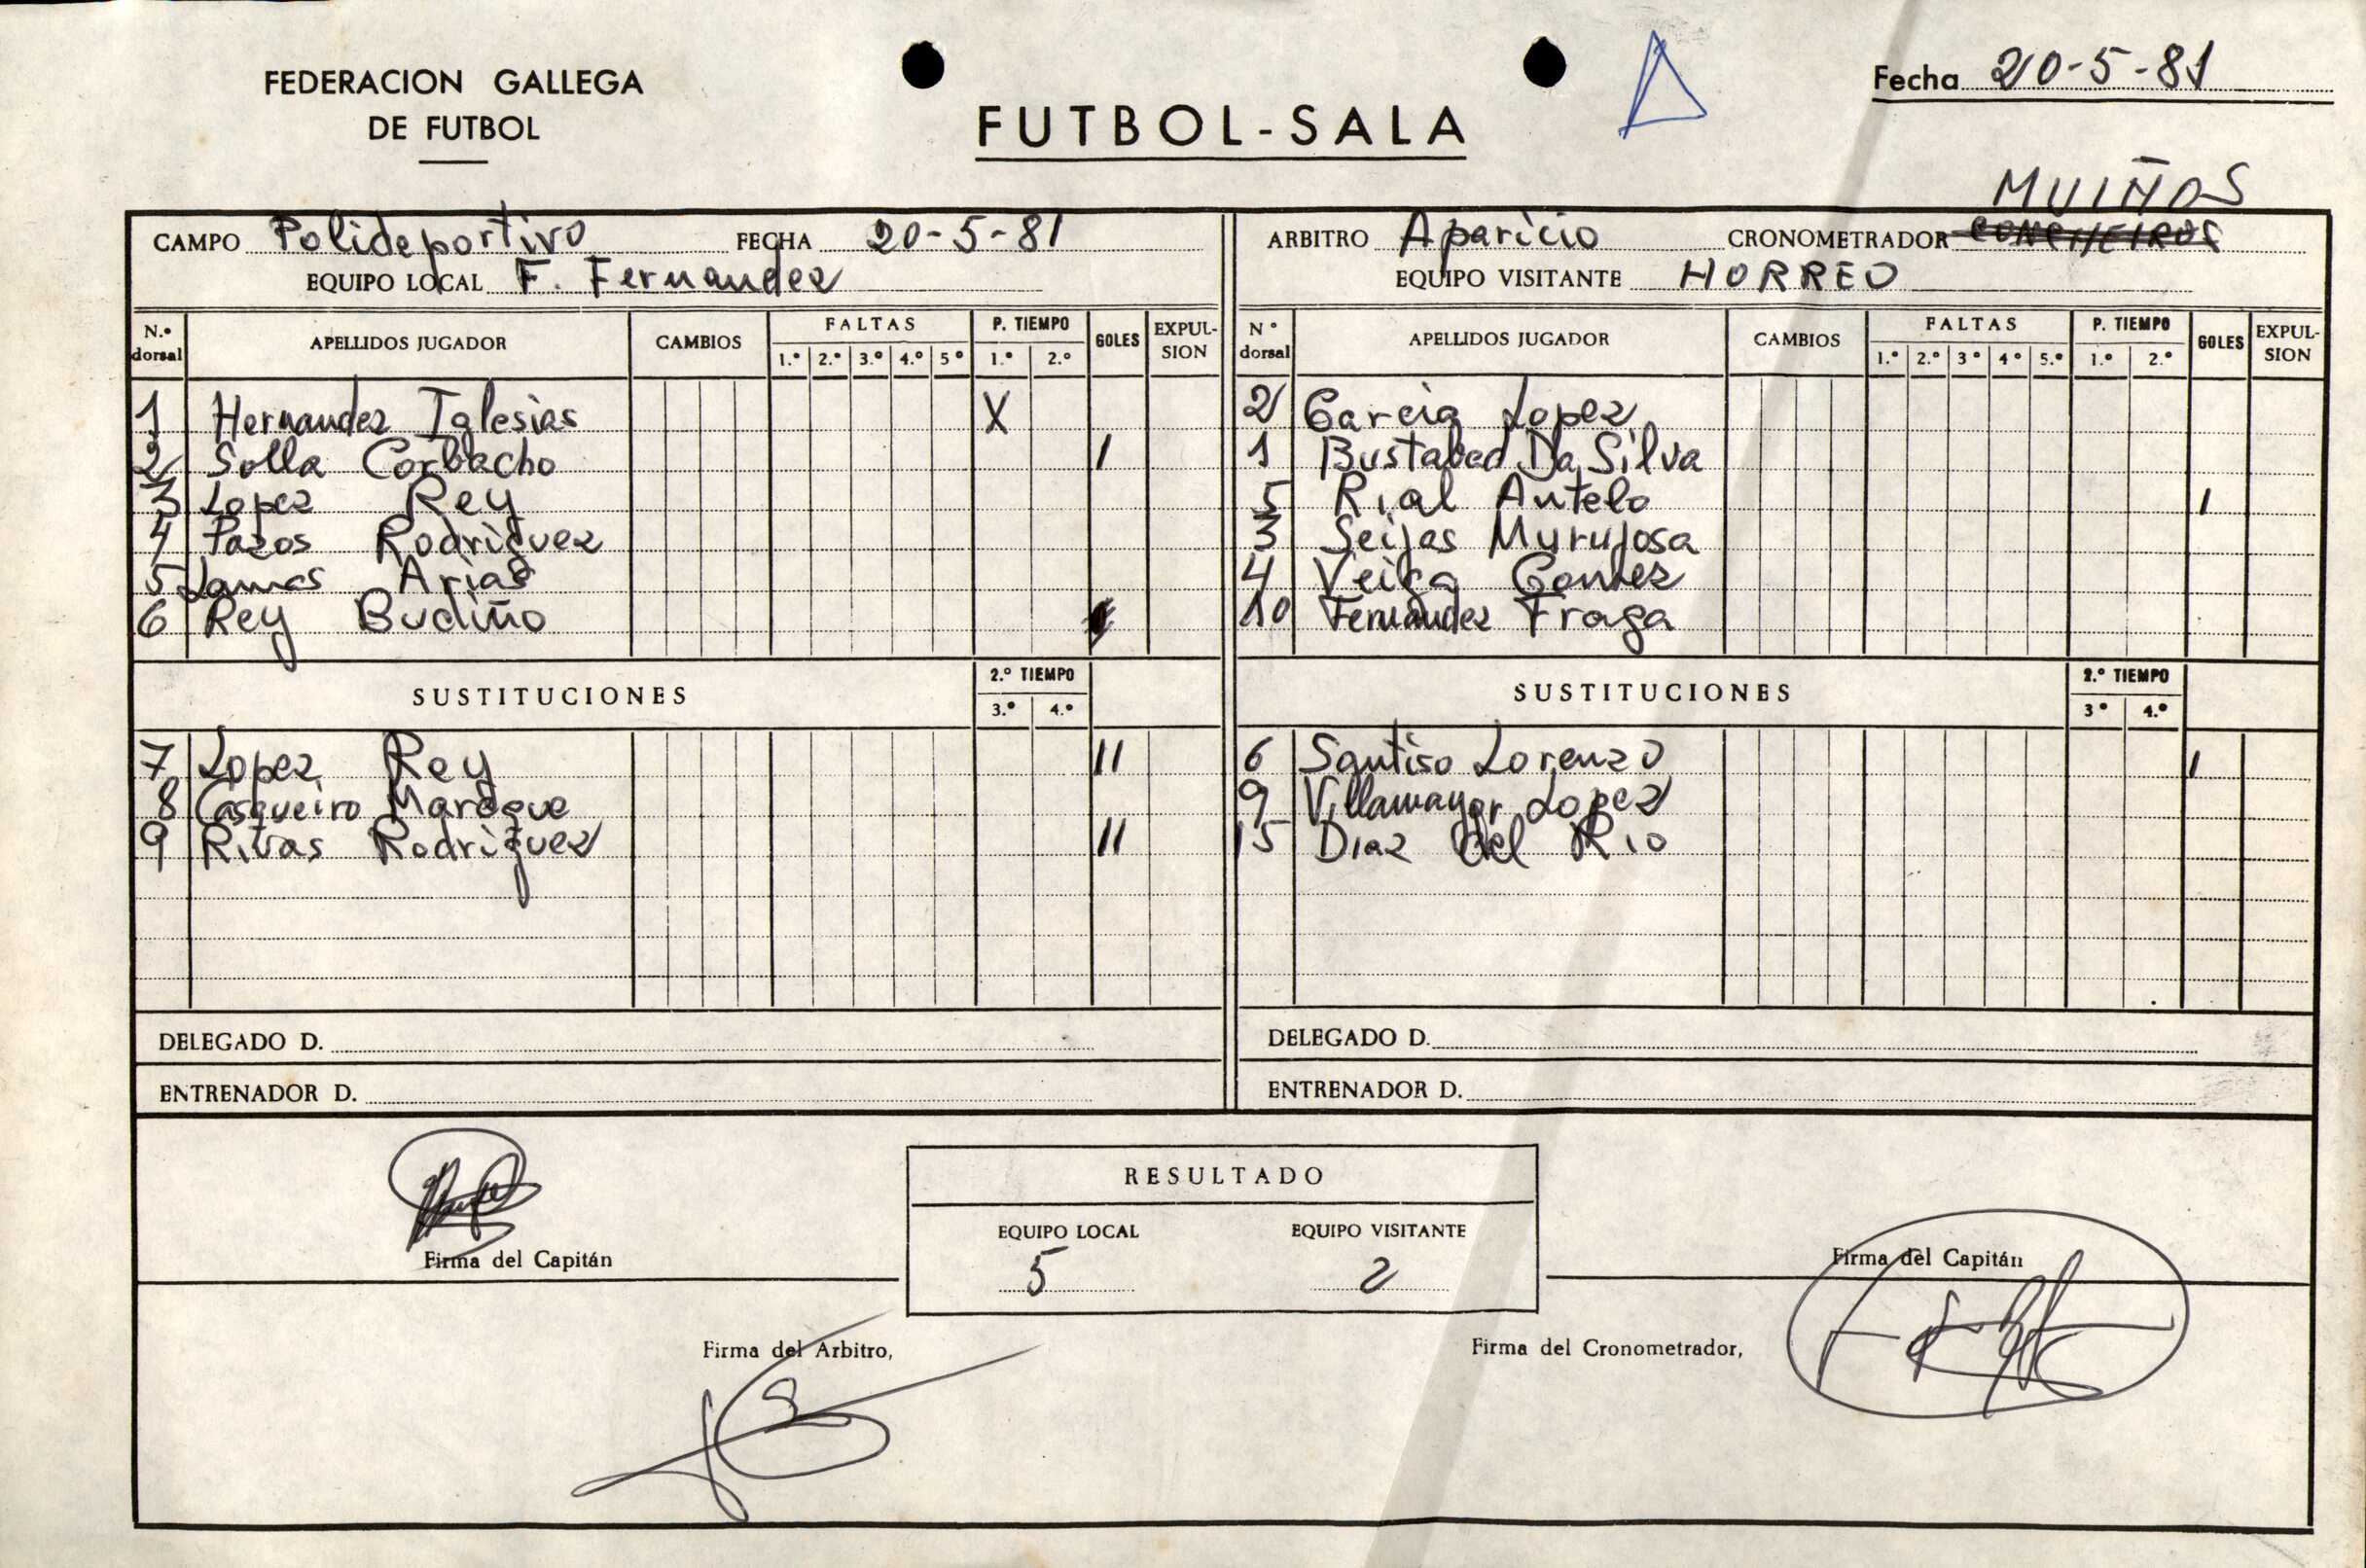 FEDERACION GALLEGA
DE FUTBOL
FUTBOL-SALA
Fecha 20-5-81
MUIÑOS
CAMPO Polideportivo FECHA 20-5-81
EQUIPO LOCAL F. Fernandez
ARBITRO Aparicio CRONOMETRADOR CONCHEIROS
EQUIPO VISITANTE HORREO
N.º dorsal APELLIDOS JUGADOR CAMBIOS FALTAS 1.º 2.º 3.º 4.º 5º P. TIEMPO 1.º 2.º GOLES EXPULSION
1 Hernandez Iglesias X
2 Solla Corbacho I
3 Lopez Rey
4 Pazos Rodriguez
5 Lamas Arias
6 Rey Budiño
SUSTITUCIONES 2.º TIEMPO 3.º 4.º
7 Lopez Rey II
8 Casqueiro
9 Rivas Rodriguez II
DELEGADO D.
ENTRENADOR D.
Nº dorsal APELLIDOS JUGADOR CAMBIOS FALTAS 1.º 2.º 3º 4º 5.º P. TIEMPO 1.º 2.º GOLES EXPULSION
2 Garcia Lopez
1 Bustabad Da Silva
5 Rial Antelo I
3 Seijas Murujosa
4 Veiga Gomez
10 Fernandez Fraga
SUSTITUCIONES 2.º TIEMPO 3º 4.º
6 Santiso Lorenzo I
9 Villamayor Lopez
15 Diaz del Rio
DELEGADO D.
ENTRENADOR D.
RESULTADO
EQUIPO LOCAL EQUIPO VISITANTE
5 2
Firma del Capitán
Firma del Capitán
Firma del Arbitro,
Firma del Cronometrador,